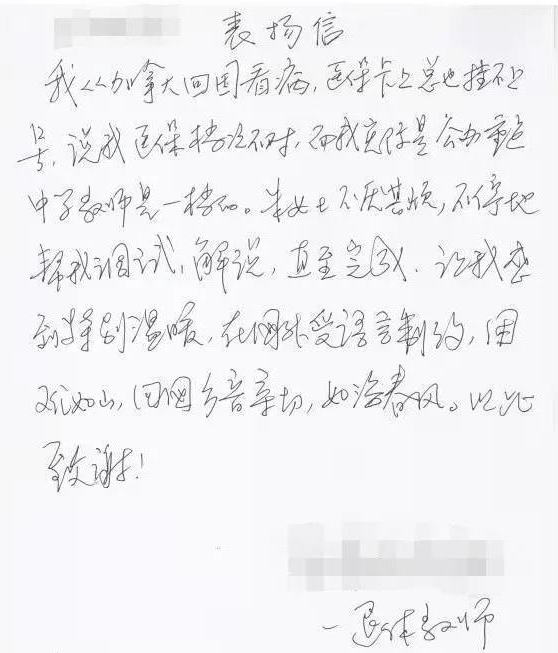 表扬信
我从加拿大回国看病,医保卡上总也挂不上
号,说我医保档次不对,而我实际是公办重点
中学教师是一档的。朱女士不厌其烦,不停地
帮我调试,解说,直至完成.让我感
到特别温暖,在国外受语言制约,困
难如山,回国乡音亲切,如沐春风。以此
致谢!
一退休教师